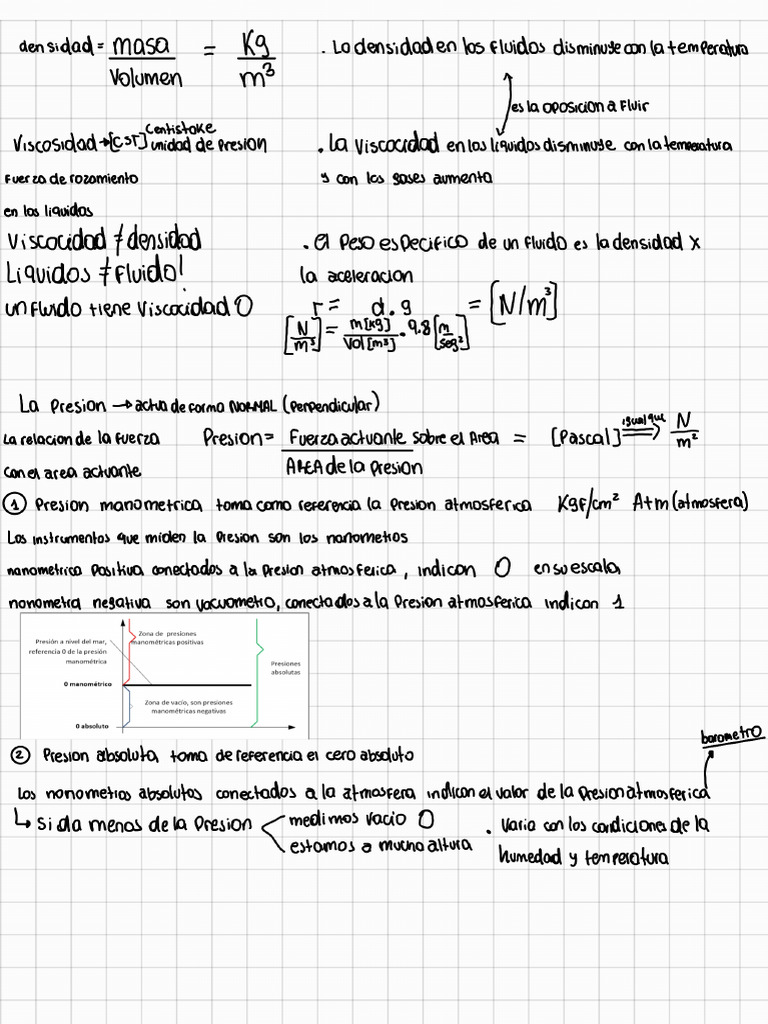 densidad = masa / Volumen = Kg / m³
. La densidad en los fluidos disminuye con la temperatura
es la oposicion a fluir
Viscosidad → [cST] centistoke unidad de presion
. La Viscocidad en los liquidos disminuye con la temperatura
y con los gases aumenta
Fuerza de rozamiento
en los liquidos
Viscocidad ≠ densidad
Liquidos ≠ Fluido!
un Fluido tiene Viscocidad 0
. el Peso especifico de un fluido es la densidad x
la aceleracion
r = d . g = [N/m³]
[N/m³] = m[kg] / Vol[m³] . 9.8 [m/seg²]
La Presion → actua de forma NORMAL (Perpendicular)
La relacion de la fuerza
con el area actuante
Presion = Fuerza actuante sobre el Area / AREA de la Presion = [Pascal] igual que ⇒ N / m²
① Presion manometrica, toma como referencia la Presion atmosferica KgF/cm² Atm (atmosfera)
Los instrumentos que miden la Presion son los nanometros
nanometrica Positiva conectados a la Presion atmosferica, indican 0 en su escala
nonometra negativa son vacuometro, conectados a la Presion atmosferica indican 1
Presión a nivel del mar,
referencia 0 de la presión
manométrica
Zona de presiones
manométricas positivas
Presiones
absolutas
0 manométrico
Zona de vacío, son presiones
manométricas negativas
0 absoluto
② Presion absoluta, toma de referencia el cero absoluto
barometro
Los nonometros absolutos conectados a la atmosfera indican el valor de la Presion atmosferica
↳ si da menos de la Presion
medimos vacio 0
estamos a mucho altura
. Varia con los condiciones de la
humedad y temperatura